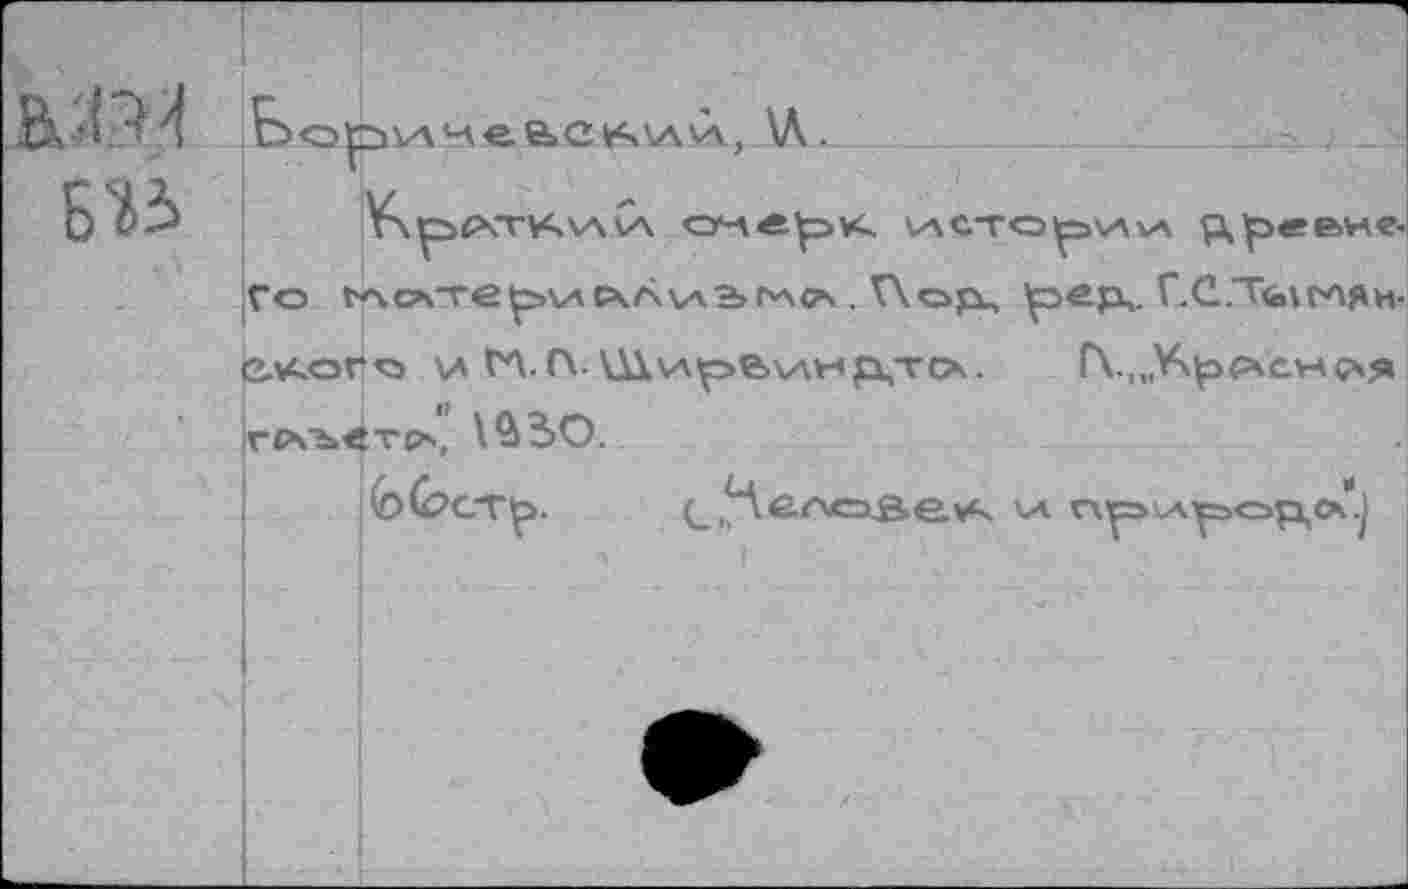 Боричевский, И.
Краткий очерк истории древне-
го материализма. Под ред. Г.С.Тымян-
ского и М.Л.Ширвиндта. Л.,,,Красная
газета", 1930.
66стр. (,,Человек и природа".)